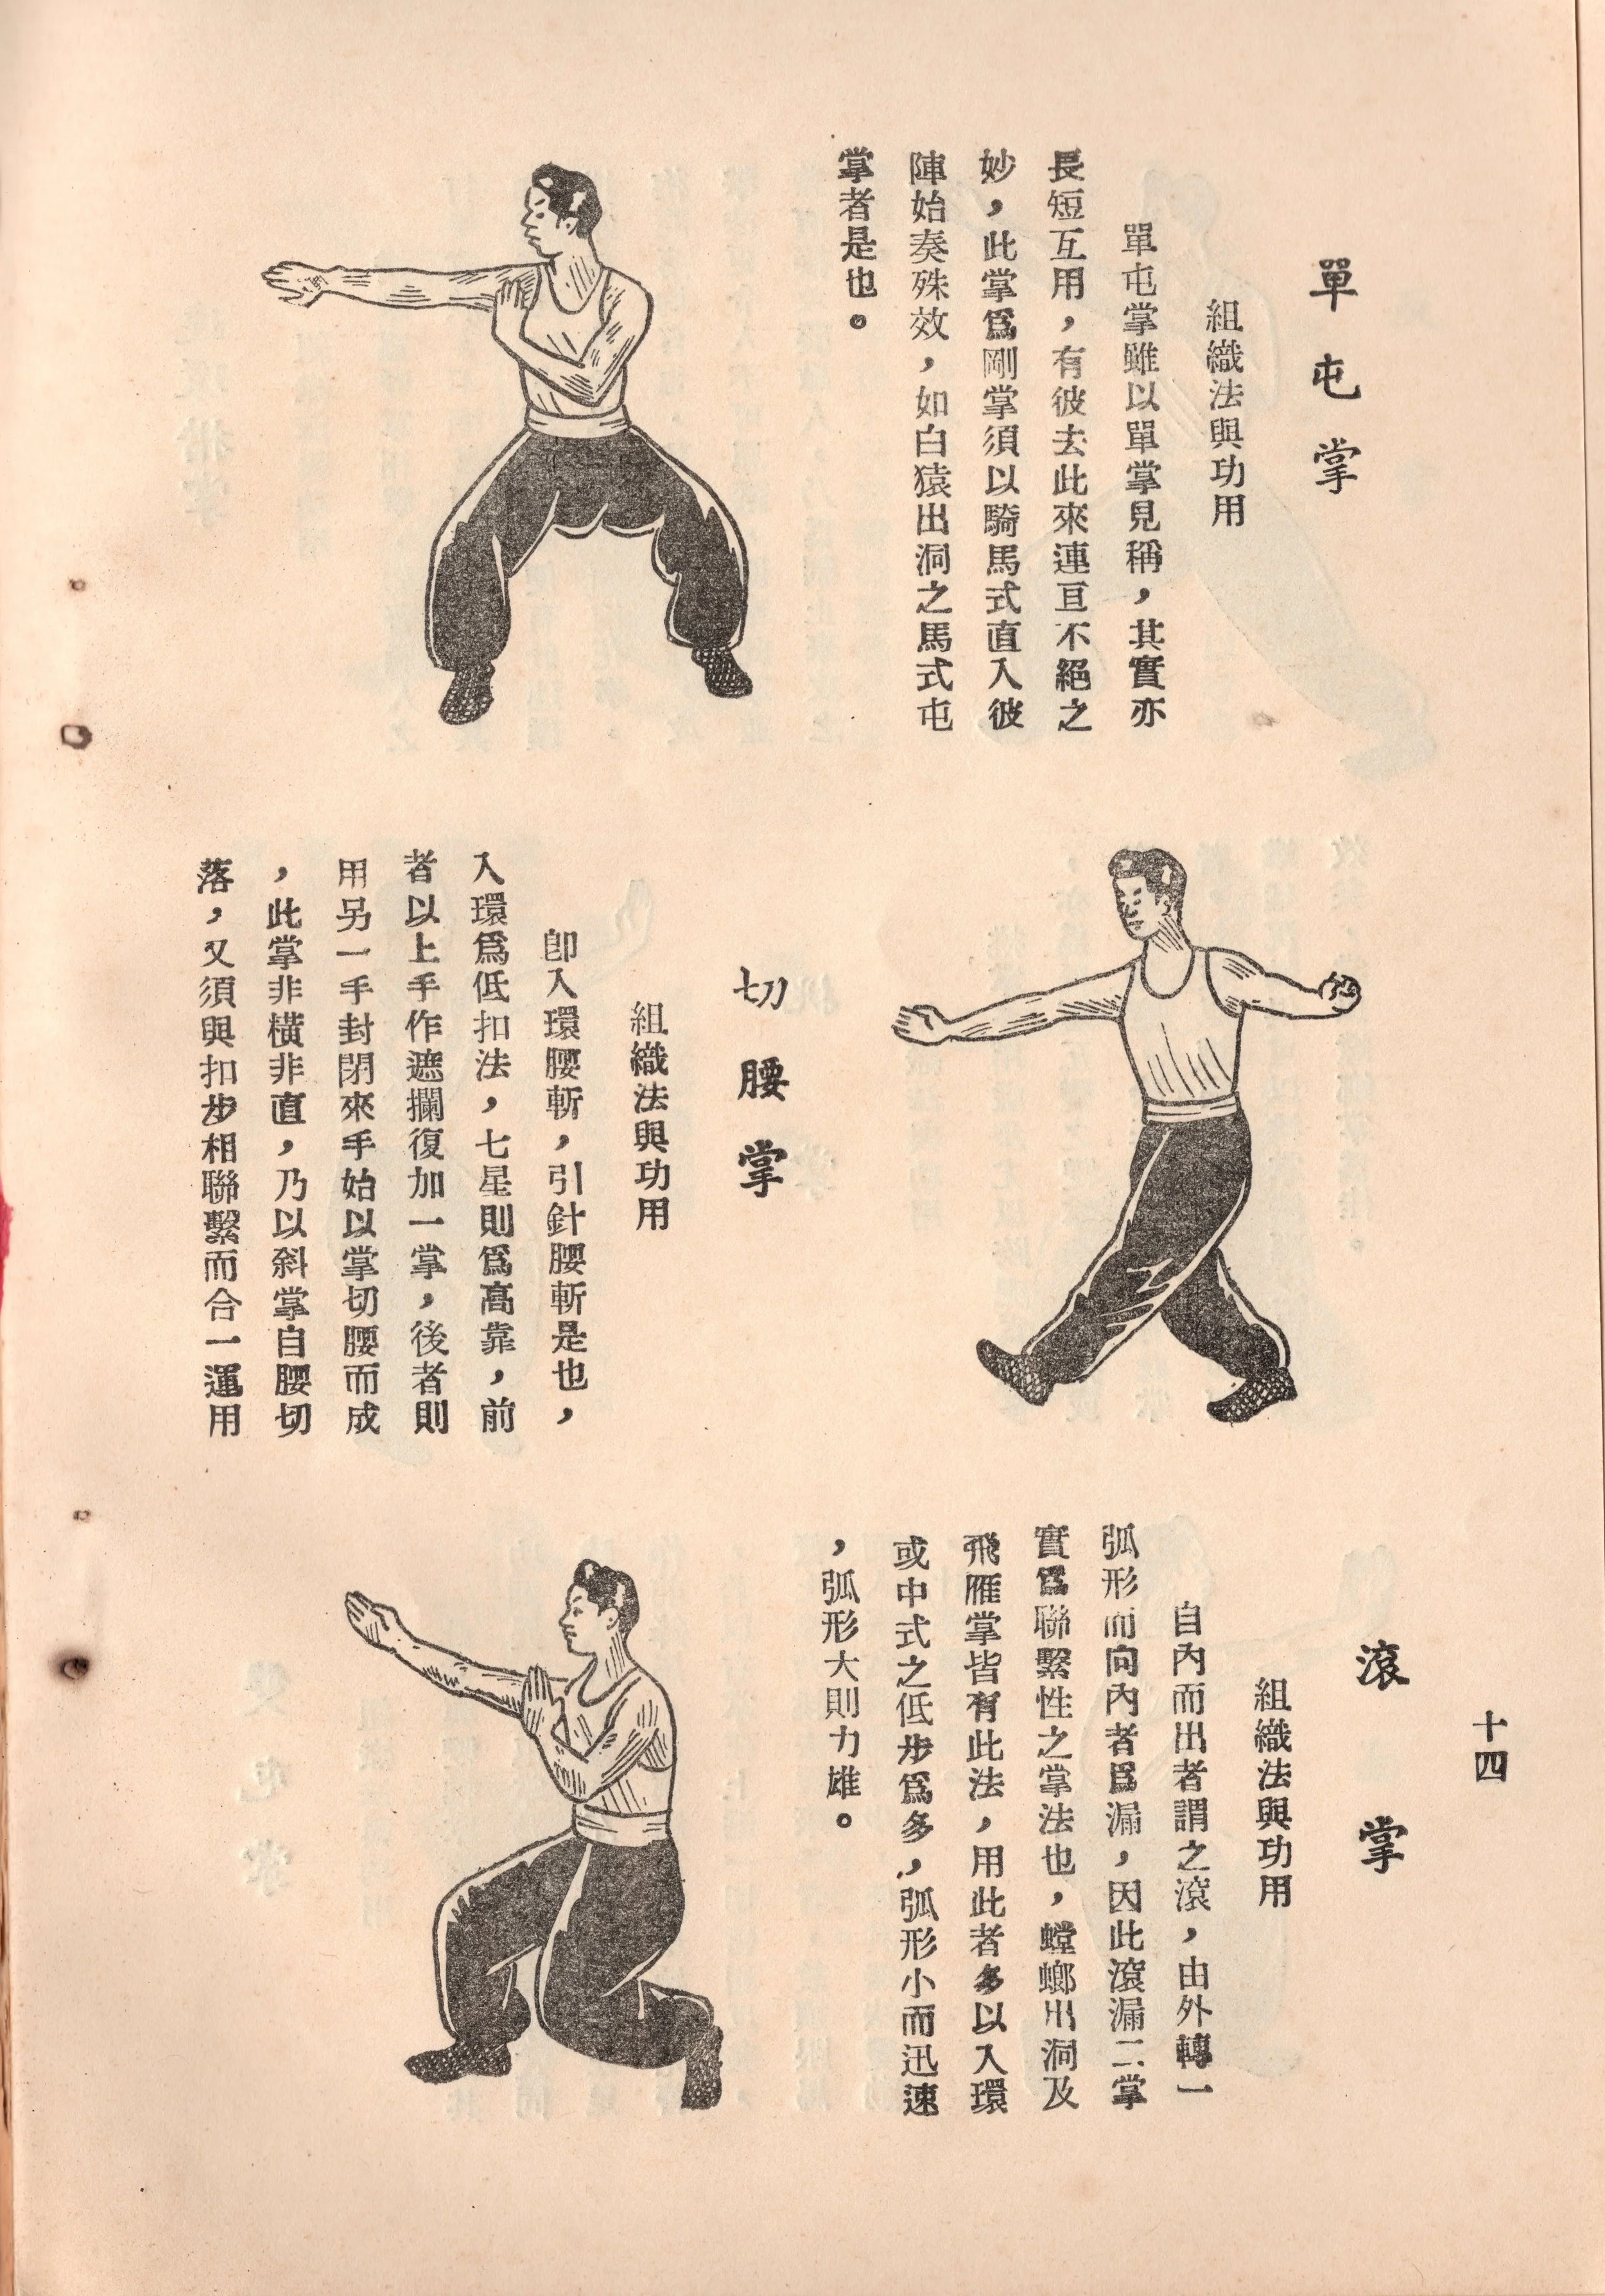 單屯掌
組織法與功用
單屯掌雖以單掌見稱，其實亦
長短互用，有彼去此來連亘不絕之
妙，此掌爲剛掌須以騎馬式直入彼
陣始奏殊效，如白猿出洞之馬式屯
掌者是也。
切腰掌
組織法與功用
卽入環腰斬，引針腰斬是也，
入環爲低扣法，七星則爲高靠，前
者以上手作遮攔復加一掌，後者則
用另一手封閉來手始以掌切腰而成
，此掌非橫非直，乃以斜掌自腰切
落，又須與扣步相聯繫而合一運用
十四
滾掌
組織法與功用
自內而出者謂之滾，由外轉一
弧形而向內者爲漏，因此滾漏二掌
實爲聯繫性之掌法也，螳螂出洞及
飛雁掌皆有此法，用此者多以入環
或中式之低步爲多，弧形小而迅速
，弧形大則力雄。